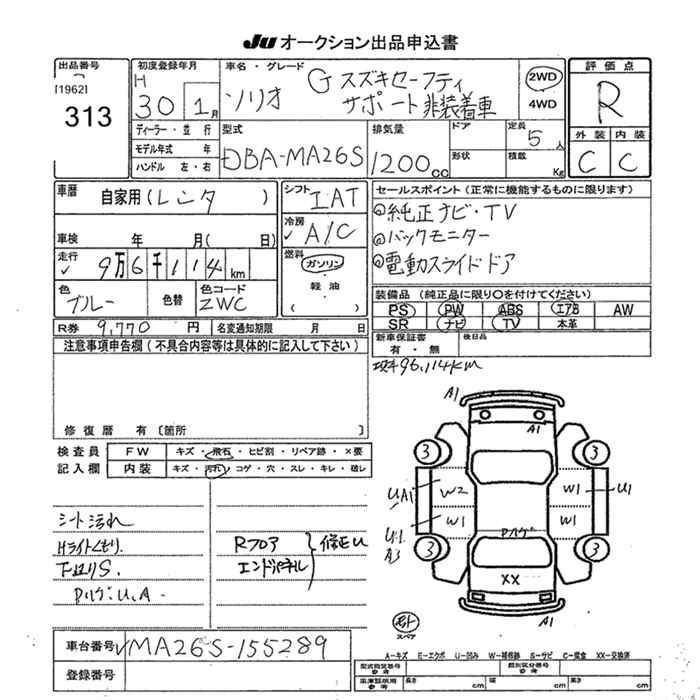 JU オークション出品申込書
出品番号
[1962]
313
初度登録年月
H 30 1月
車名・グレード
ソリオ G スズキセーフティ
サポート非装着車
2WD
4WD
評価点
R
外装 内装
C C
ディーラー・並行
モデル年式 年
ハンドル 左・右
型式
DBA-MA26S
排気量
1200cc
ドア
形状
定員 5人
積載 Kg
車歴
自家用(レンタ )
シフト
IAT
セールスポイント(正常に機能するものに限ります)
◎純正ナビ・TV
◎バックモニター
◎電動スライドドア
車検 年 月( 日)
冷房
A/C
走行
9万6千114km
燃料
ガソリン
・
軽油
・
( )
色
ブルー
色替
色コード
ZWC
装備品(純正品に限り○を付けてください)
PS PW ABS エアB AW
SR ナビ TV 本革
R券 9,770 円
名変通知期限 月 日
新車保証書
有・無
後日品
注意事項申告欄(不具合内容等は具体的に記入して下さい)
96,114KM
修復歴 有〔箇所 〕
検査員
記入欄
FW キズ・飛石・ヒビ割・リペア跡・×要
内装 キズ・汚れ・コゲ・穴・スレ・キレ・破レ
シート汚れ
Hライトくもり
下廻りS.
PハゲU.A-
Rフロア
エンドパネル
修正U
A1
A1
3 3
UA1 W2 W1 U1
W1 W1
U1
A3
Pハゲ
3 3
XX
A1
スペア
車台番号 MA26S-155289
登録番号
A-キズ E-エクボ U-凹み W-補修跡 S-サビ C-腐食 XX-交換済
型式指定番号
参考
類別区分番号
参考
車庫証明用
参考
長さ cm
幅 cm
高さ cm